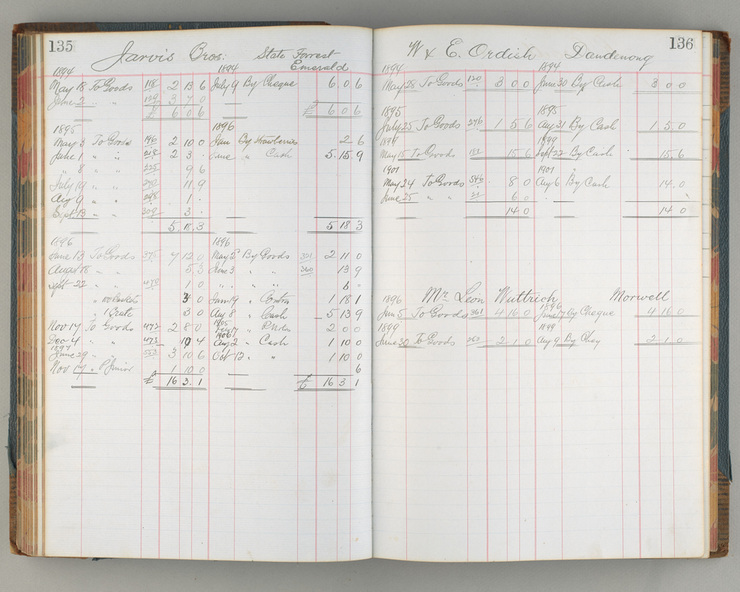 135
Jarvis Bros. State Forrest
Emerald
1894 1894
May 18 To Goods 118 2 13 6 July 9 By Cheque 6 0 6
June 2 " " 3 7 0
£ 6 0 6 £ 6 0 6
1895 1896
May 3 To Goods 2 10 0 Jan By
2 6
June 1 " " 2 3 June " Cash 5 15 9
" 8 " " 9 6
July 19 " " 11 9
Aug 9 " " 1
Sept 13 " " 3
5 18 3 5 18 3
1896 1896
June 13 To Goods 375 7 12 0 May 2 By Goods 321 2 11 0
Augst 18 " " 5 3 June 3 " " 360 13 9
Sept 22 " " 1 0 " " " 6
3 0 June 9 " 1 18 1
1 Crate 3 0 Aug 8 " Cash 5 13 9
Nov 17 To Goods 473 2 8 0 2 0 0
Dec 4 " " 473 19 4 Aug 2 " Cash 1 10 0
1897
June 29 " " 3 10 6 Oct 12 " " 1 10 0
Nov 1 10 0 6
£ 16 3 1 £ 16 3 1
136
W & E. Ordish Dandenong
1894 1894
May 28 To Goods 120 3 0 0 June 30 By Cash 3 0 0
1895 1895
July 25 To Goods 246 1 5 6 Aug 21 By Cash 1 5 0
1899
May 15 To Goods 15 6 Sept 22 By Cash 15 6
1901 1901
May 24 To Goods 549 8 0 Aug 6 By Cash 14 0
June 25 " " 21 6 0
14 0 14 0
1896 Mr. Leon Wuttrich Morwell
1896
Jan 5 To Goods 361 4 16 0 June 17 By Cheque 4 16 0
1899 1899
June 30 To Goods 263 2 1 0 Aug 9 By Chq 2 1 0